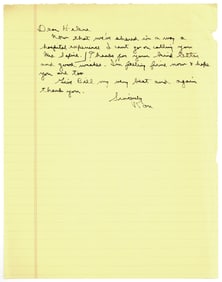 Dear Helene
Now that we've shared in a way a
hospital experience I can't go on calling you
Thanks for your kind letter
and good wishes. I'm feeling fine now & hope
you are too.
Give Bill my very best and again
thank you.
Sincerely
Ron